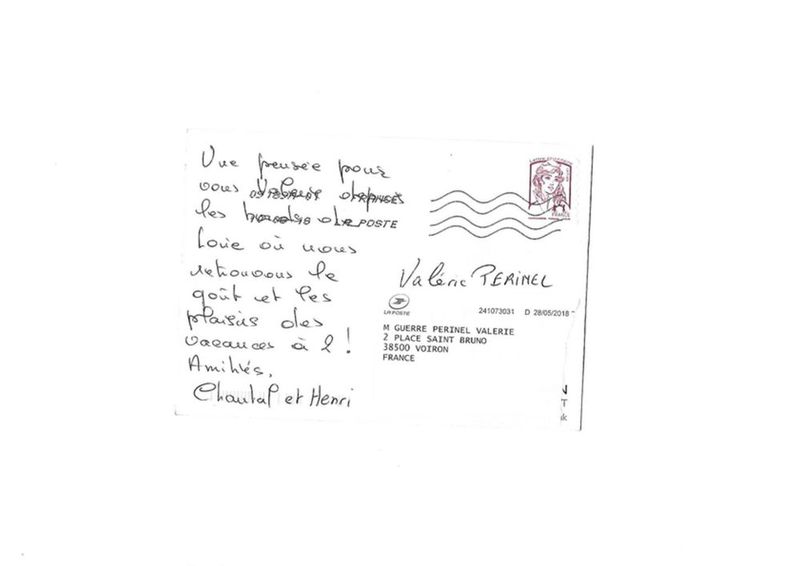 Une pensée pour
vous Valérie depuis
les bords de
Loire où nous
retrouvons le
goût et les
plaisirs des
vacances à 2 !
Amitiés,
Chantal et Henri
FRANCE
LA POSTE
FRANCE
Valérie PERINEL
LA POSTE
241073031 D 28/05/2018
M GUERRE PERINEL VALERIE
2 PLACE SAINT BRUNO
38500 VOIRON
FRANCE
N
T